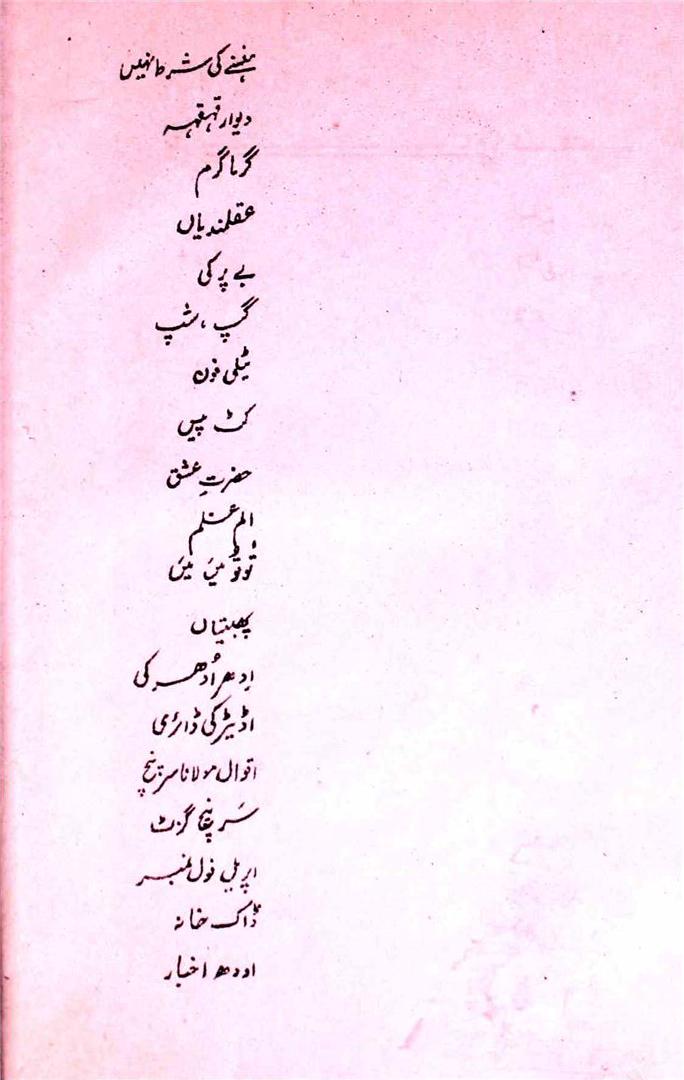 ہنسنے کی شرط نہیں
دیوار قہقہہ
گرما گرم
عقلمندیاں
بے پر کی
گپ، شپ
ٹیلی فون
کٹ پیس
حضرتِ عشق
الم غلم
تُو تُو میں میں
پھبتیاں
اِدھر اُدھر کی
اڈیٹر کی ڈائری
اقوال مولانا سرپنچ
سَرپنچ گزٹ
اپریل فول نمبر
ڈاک خانہ
اودھ اخبار